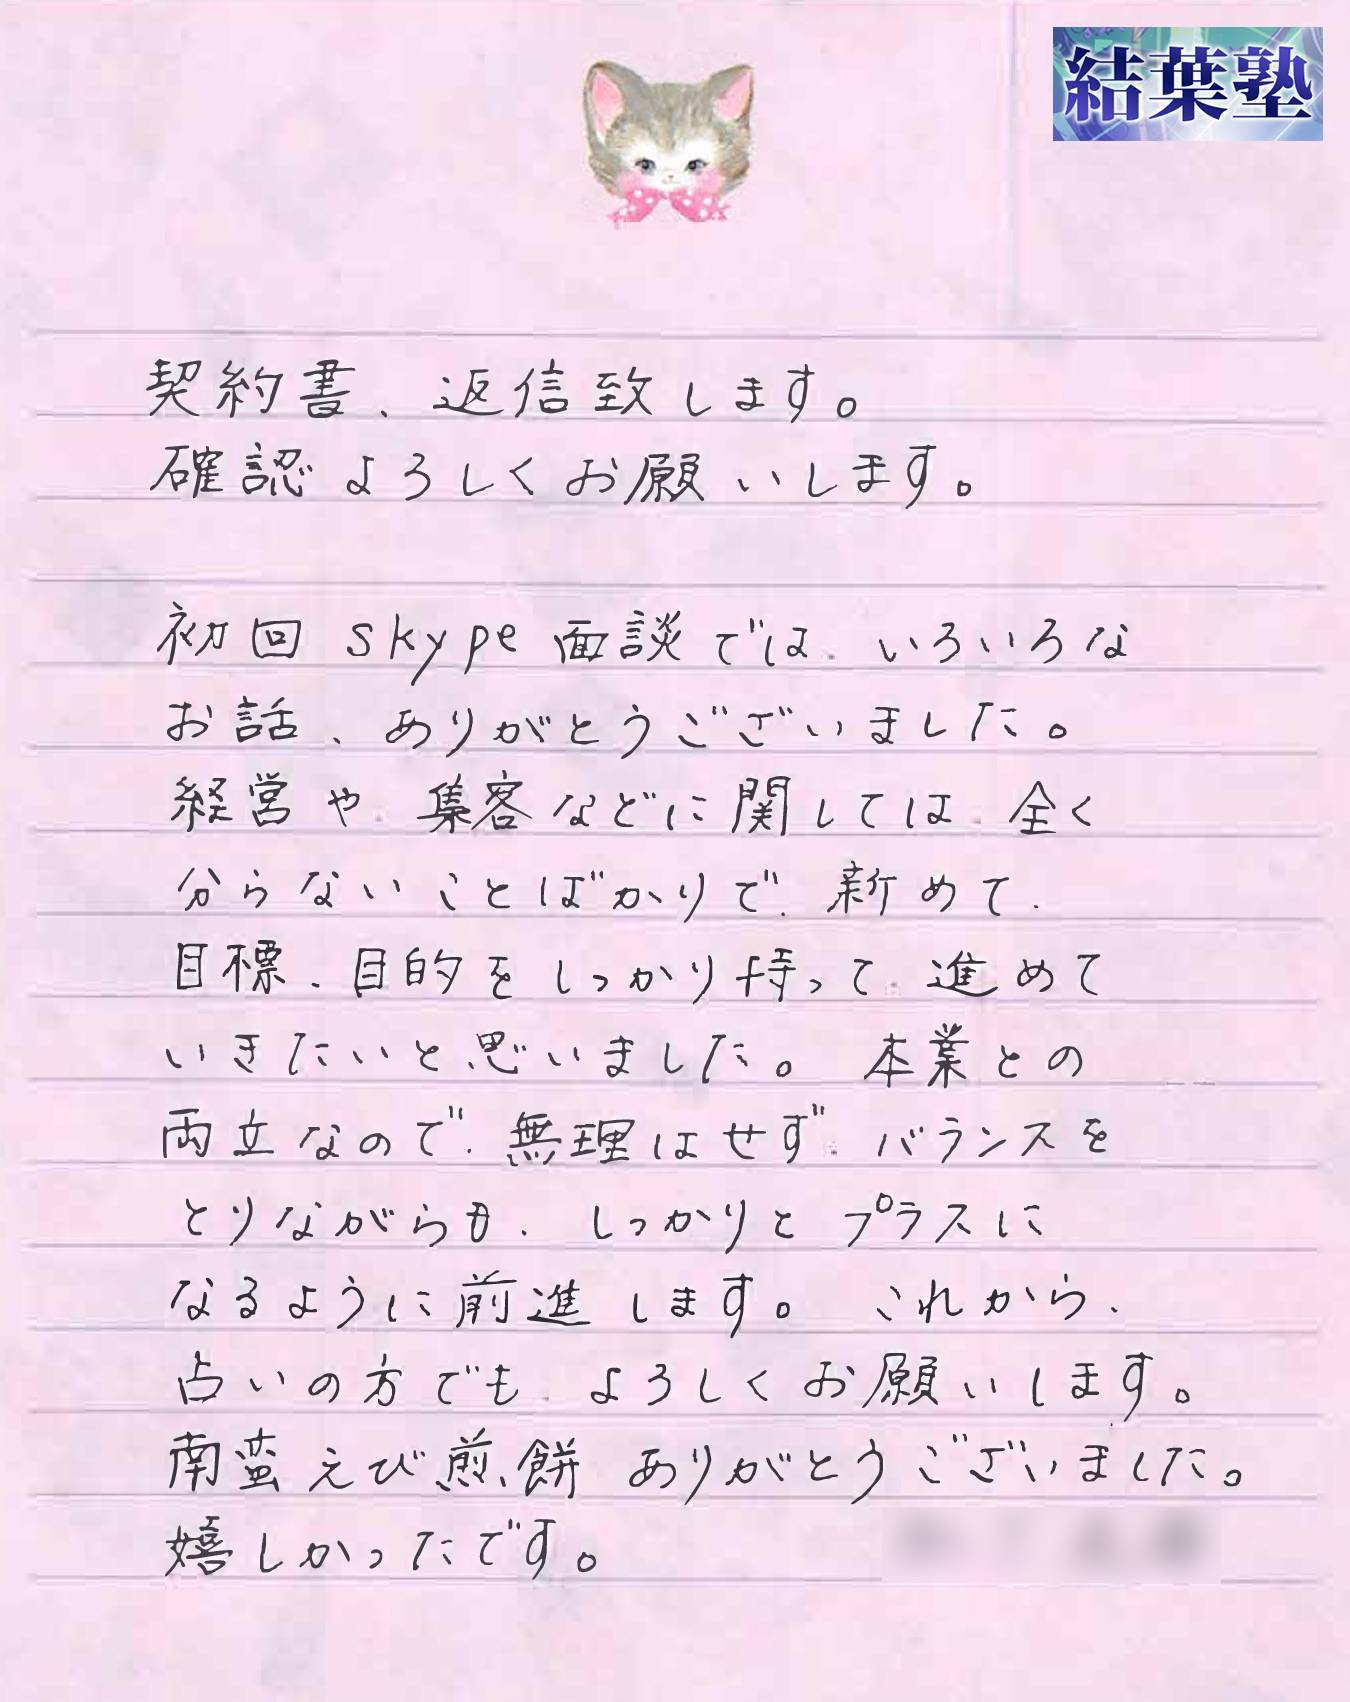 結葉塾
契約書、返信致します。
確認よろしくお願いします。
初回 skype 面談では、いろいろな
お話、ありがとうございました。
経営や、集客などに関しては、全く
分らないことばかりで、新めて、
目標、目的をしっかり持って、進めて
いきたいと思いました。 本業との
両立なので、無理はせず、バランスを
とりながらも、しっかりと プラスに
なるように前進します。 これから、
占いの方でも、よろしくお願いします。
南蛮えび煎餅 ありがとうございました。
嬉しかったです。